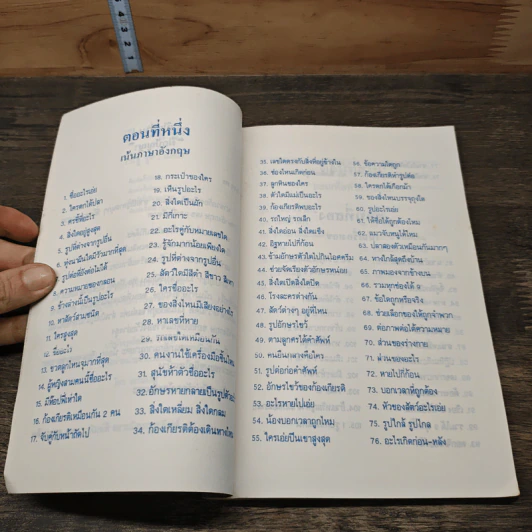 ตอนที่หนึ่ง
เน้นภาษาอังกฤษ
1. ชื่ออะไรเอ่ย
2. ใครตกได้ปลา
3. ใครชื่ออะไร
4. สิ่งใดอยู่สูงสุด
5. รูปที่ต่างจากรูปอื่น
6. ทุ่งนาผืนใดมีรั้วมากที่สุด
7. รูปต่อที่ยังต่อไม่ได้
8. ความหมายของกลอน
9. ข้างล่างนี้เป็นรูปอะไร
10. หาสัตว์สามชนิด
11. ใครสูงสุด
12. ชื่ออะไร
13. ขวดลูกไหนจุมากที่สุด
14. ผู้หญิงสามคนนี้ชื่ออะไร
15. มีท็อปพี่เท่าใด
16. ก้องเกียรติเหมือนกัน 2 คน
17. จับคู่กับหน้าถัดไป
18. กระเป๋าของใคร
19. เห็นรูปอะไร
20. สิ่งใดเป็นผัก
21. มีกี่เกาะ
22. อะไรคู่กับหมายเลขใด
23. รู้จักมากน้อยเพียงใด
24. รูปที่ต่างจากรูปอื่น
25. สัตว์ใดมีสีดำ สีขาว สีเทา
26. ใครชื่ออะไร
27. ของสิ่งไหนมีเสียงอย่างไร
28. หาเลขที่หาย
29. กิ่งเลขเหมือนกัน
30. คนงานใช้เครื่องมือชิ้นไหน
31. สุนัขห้าตัวชื่ออะไร
32. อักษรหายกลายเป็นรูปตัวอะไร
33. สิ่งใดเหลี่ยม สิ่งใดกลม
34. ก้องเกียรติต้องเดินทางไหน
35. เลขใดตรงกับสิ่งที่อยู่ข้างใน
36. ช่องไหนเกิดก่อน
37. ลูกหินของใคร
38. ตัวใดมีแม่เป็นอะไร
39. ก้องเกียรติพบอะไร
40. รถใหญ่ รถเล็ก
41. สิ่งใดอ่อน สิ่งใดแข็ง
42. อิฐหายไปกี่ก้อน
43. ข้ามอักษรตัวใดไปกินไอศครีม
44. ช่วยจัดเรียงตัวอักษรหน่อย
45. สิ่งใดเปิดสิ่งใดปิด
46. โรงละครต่างกัน
47. สัตว์ต่างๆ อยู่ที่ไหน
48. รูปอักษรไขว้
49. ตามลูกศรได้คำศัพท์
50. คนยืนกลางคือใคร
51. รูปต่อก่อคำศัพท์
52. อักษรไขว้ของก้องเกียรติ
53. อะไรหายไปเอ่ย
54. น้องบอกเวลาถูกไหม
55. ใครเอ่ยปีนเขาสูงสุด
56. ข้อความใดถูก
57. ก้องเกียรติทำรูปต่อ
58. ใครตกได้เกือกม้า
59. ของสิ่งไหนบรรจุถุงใด
60. รูปอะไรเอ่ย
61. ใต้ชื่อใดถูกต้องไหม
62. แมวจับหนูได้ไหม
63. ปลาสองตัวเหมือนกันมากๆ
64. ทางใกล้สุดถึงบ้าน
65. ภาพมองจากข้างบน
66. รวมทุกช่องได้ 9
67. ข้อใดถูกหรือจริง
68. ช่วยเลือกของได้ถูกจำพวก
69. ต่อภาพต่อได้ความหมาย
70. ส่วนของร่างกาย
71. ส่วนของอะไร
72. หายไปกี่ก้อน
73. บอกเวลาที่ถูกต้อง
74. หัวของสัตว์อะไรเอ่ย
75. รูปใกล้ รูปไกล
76. อะไรเกิดก่อน-หลัง